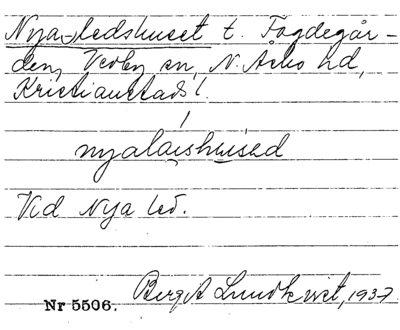 Nya-ledshuset t. Fogdegår-
den, Vedby sn, N. Åsbo hd,
Kristianstads l.
nyalaishused
Vid Nya led.
Berga Lundkvist, 1937
Nr 5506.